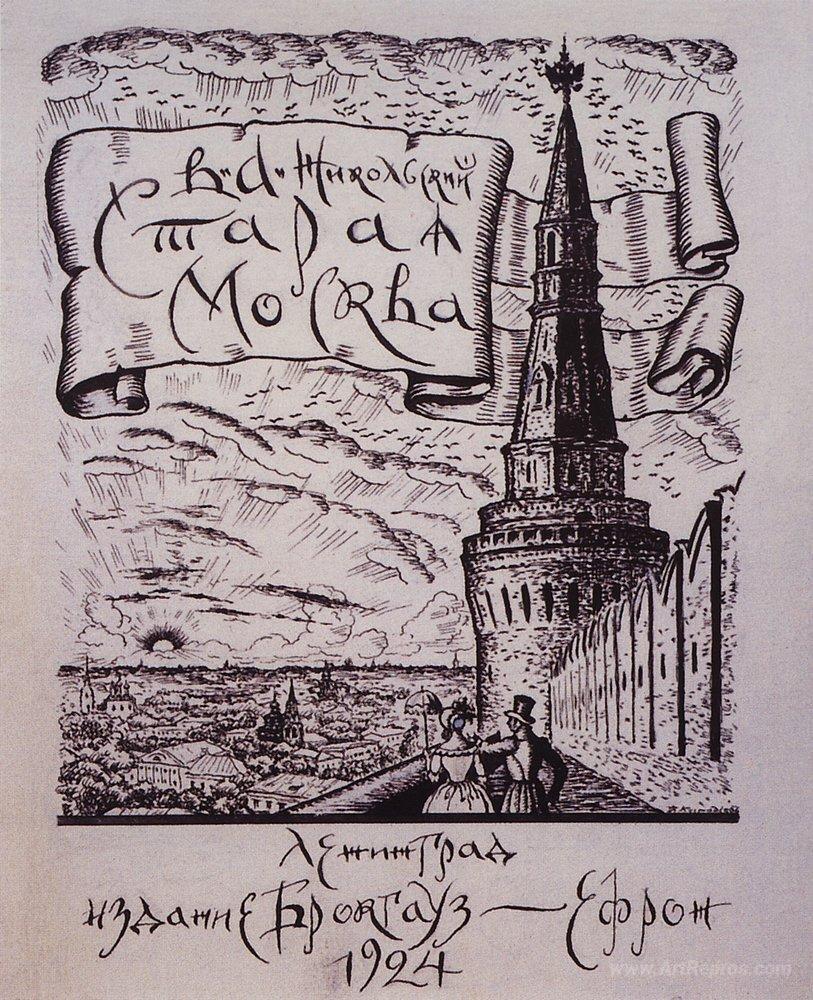 В. А. Никольский
Старая
Москва
Ленинград
издание Брокгауз — Ефрон
1924
www.ArtRepros.com